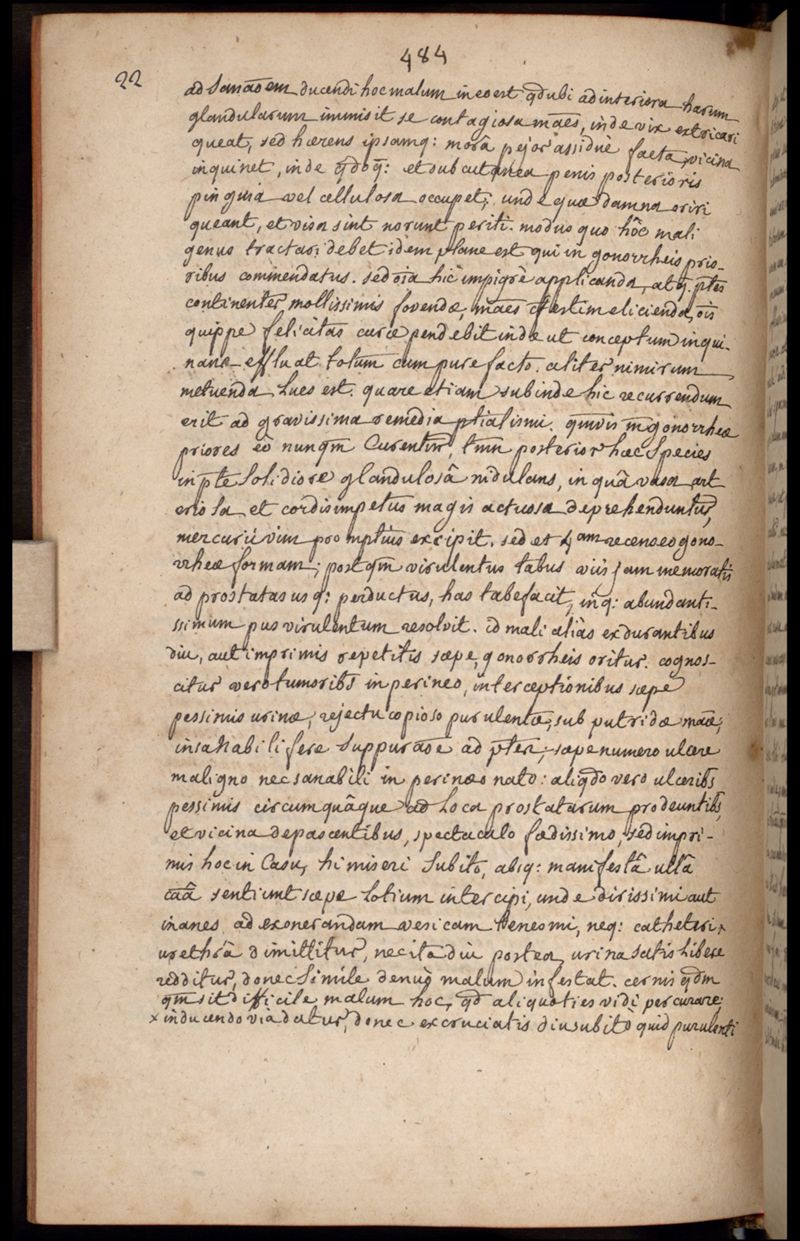 484
22
ad Sanãõem ducendi hoc malum in eo est q̃d ubi ad interiora harum
glandularum immisit se contagiosa mães, inde vix extricari
queat, sed hærens ipsamq: morâ pejor assiduè facta, vicina
inquinet, inde q̃doq̃: et subcutanea penis posterioris
pinguia vel cellulosa occupet; unde quæ damna oriri
queant, et visa sint norunt periti. modus quo hõc mali
genus tractari debet idem plane est qui in gonorrheis prio-
ribus commendatus. sed oĩa hîc impigrè applicanda, atq. ptes
continenter mollissimis fovendæ, mães festim elicienda, oĩs
quippe felicitas curæ pendebit inde ut conceptum inqui-
nans effluat totum cum pure facto. aliter nimirum
metuenda Lues est. quare etiam subinde hic recurrendum
erit ad gravissima remedia ptialismi. quñvis iñ gonorrheæ
priores eo nunq̃m Curentur, tmñ posterior hæc Species
in pte solidiore glandulosâ nidulans, in quâ vasa art
eriosa et cordis impetus magis actuosa deprehenduntur,
mercurii vim promptius excipit. sed et 4am recenseo gono-
rrheæ formam; postq̃m virulentus tabus viis jam memoratis
ad prostatas usq: perductus, has tabefacit, inq: abundanti-
ssimum pus virulentum resolvit. id mali aliàs ex durantibus
diu, aut imprimis repetitis sæpe, gonorrheis oritur. cognos-
citur vero tumoribs in perineo, interceptionibus sæpe
pessimis urinæ, rejectu copioso purulentæ, sub putridæ mãæ,
insanabili fere suppurãõe ad ptem, sæpenumero ulcere
maligno nec sanabili in perinæo nato: aliq̃do vero ulceribs
pessimis circumquâque ad Loca prostatarum prodeuntibs,
et vicina depascentibus, spectaculo fœdissimo, sed impri-
mis hoc in Casu, hi miseri subito, absq: manifestâ ullâ
cãâ sentiunt sæpe lotium intercipi, unde dirissimi aut
inanes ad exonerandam vesicam tenesmi, neq: catheteri x
urethrâ dimittitur, nec ita diu postea urina satis libere
redditur, donec simile denuo malum infestat. cernis q̃dm
q̃m sit difficile malum hoc, q̃d aliquoties vidi per curare;
x inducendo via datur, donec excruciatis diu subitò quid purulenti